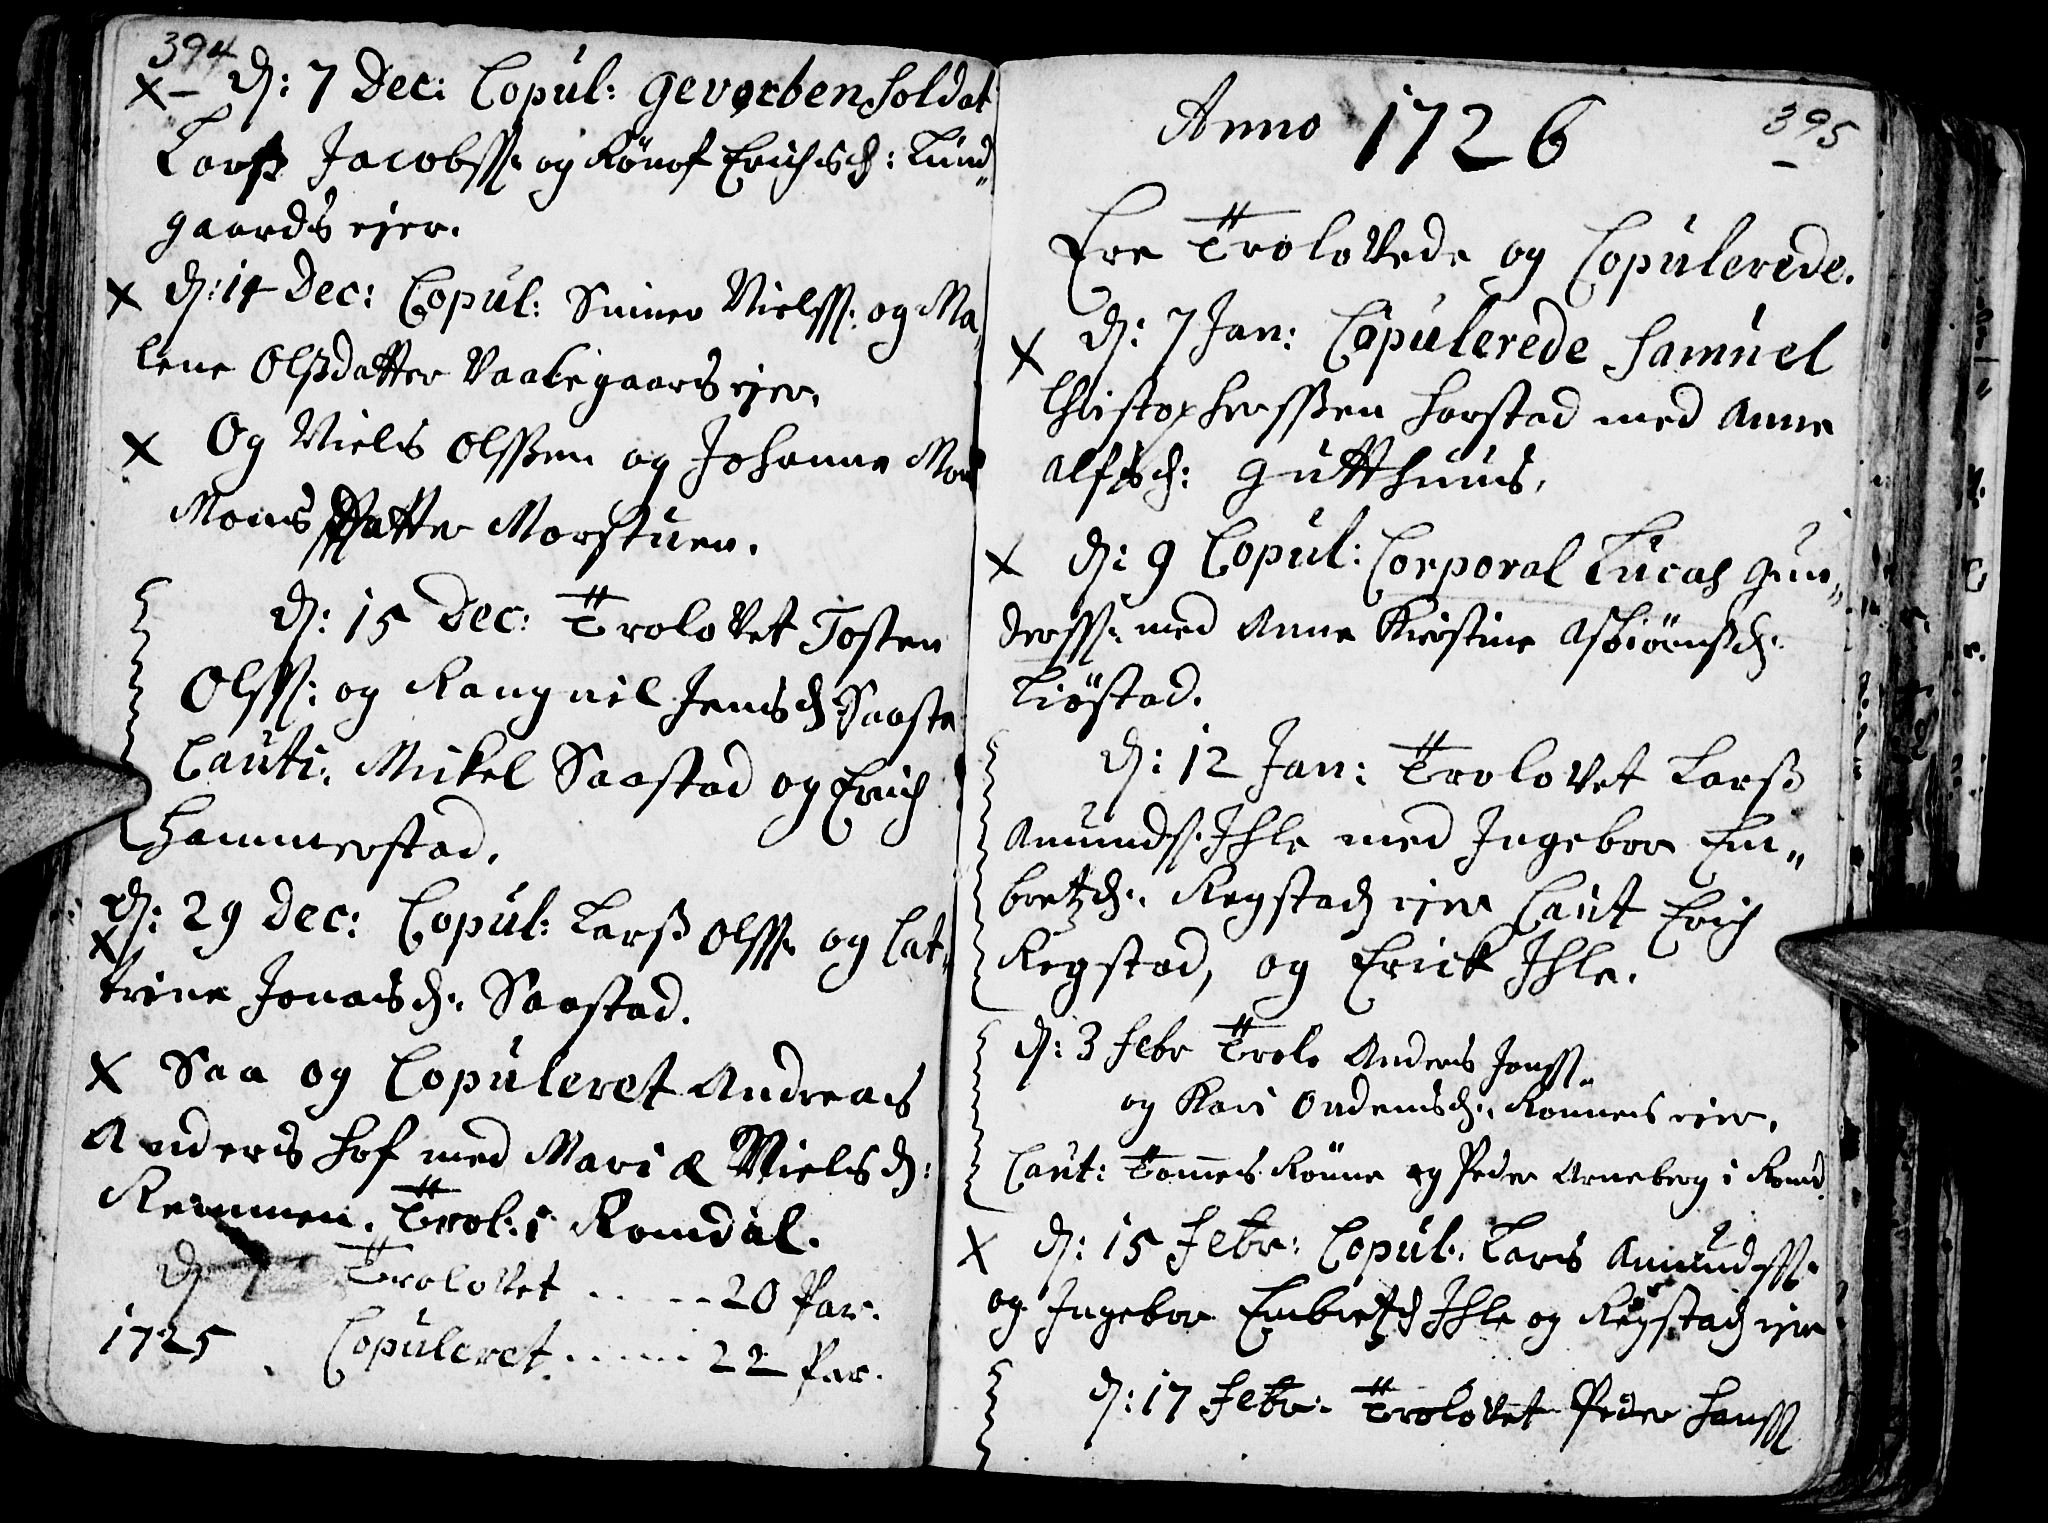 394
x– d: 7 Dec: Copul: gevorben soldat
Larß Jacobss: og Rönof Erichsd: Lund„
gaards ejer.
x d: 14 Dec: Copul: Nielss: og Ma„
lene Olßdatter Vaalegaars ejer,
x Og Niels Olssen og Johanne
Mons Datter Morstuen.
d: 15 Dec: Trolovet Tosten
Olss: og Rangnil Jensd: Saaste
Cauti: Mikel Saastad og Erich
Hammerstad.
d: 29 Dec: Copul: Larß Olss: og Cat„
x
trine Jonasd: Saastad.
x Saa og Copuleret Andreas
Anders Hof med Maria Nielsd:
Remmen. Trol: i Romdal.
Trolovet . . . . . 20 Par.
1725 . Copuleret . . . . . 22 Par.
395
Anno 1726
Ere Trolovede og Copulerede.
x d: 7 Jan: Copulerede Samuel
Christophersßen Harstad med Anne
Alfsd: Gutthuus,
x d: 9 Copul: Corporal Lucas Gun„
derss: med Anne Kirstine Asbiörnsd:
Liöstad.
d: 12 Jan: Trolovet Larß
Amunds: Ihle med Ingebor Em„
bretzd: Regstad ejer Caut Erich
Regstad, og Erick Ihle.
d: 3 Febr Trolo Anders Jonss:
og Kari Ondensd: Ronnens ejer,
Caut: Tommes Rönne og Peder Arneberg i Romd
x d: 15 Febr: Copul: Lars Amundss:
og Ingebor Embretzd Ihle og Regstad ejer
d: 17 Febr: Trolovet Peder Hanss